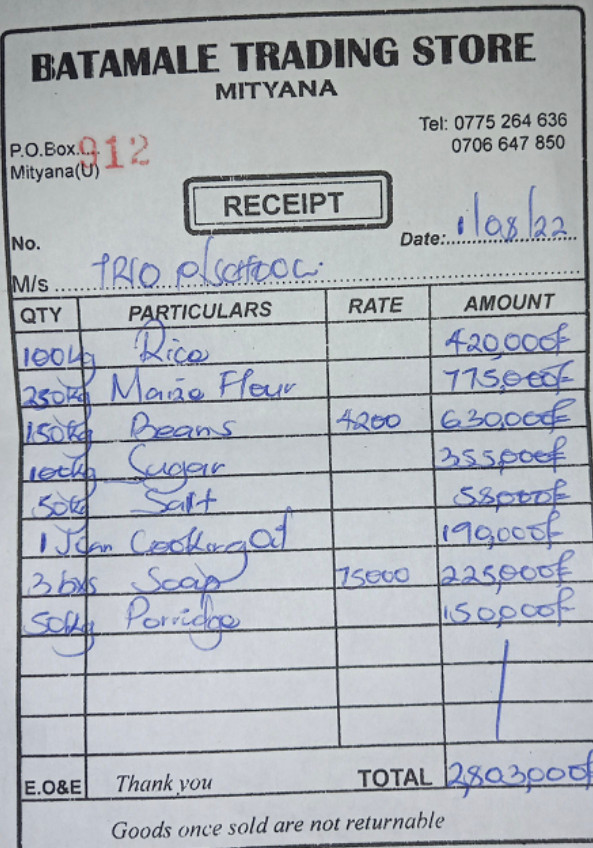 BATAMALE TRADING STORE
MITYANA
Tel: 0775 264 636
0706 647 850
P.O.Box... 912
Mityana(U)
RECEIPT
No.
Date: 1/08/22
M/s TRIO P/SCHOOL.
QTY PARTICULARS RATE AMOUNT
100kg Rice 420,000/=
250kg Maize Flour 775,000/=
150kg Beans 4200 630,000/=
100kg Sugar 355,000/=
50kg Salt 58,000/=
1 Jcan Cooking Oil 190,000/=
3 bxs Soap 75000 225,000/=
50kg Porridge 150,000/=
E.O&E Thank you TOTAL 2,803,000/=
Goods once sold are not returnable